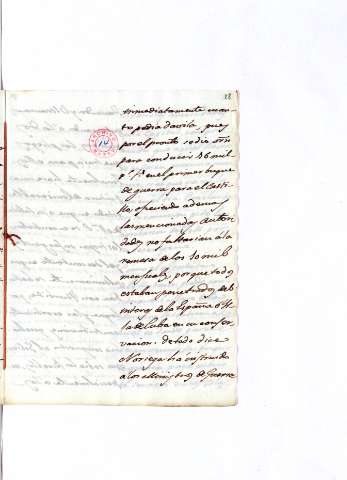 28
inmediatamente cuan-
to pedia davila, pues
por el pronto se dio orn
para conducir 16 mil
p.s f.s en el primer buque
de guerra para el Casti-
llo, ofreciendo ademas
las mencionadas autori-
dades no faltarian á la
remesa de los 10 mil
mensuales, porque todos
estaban penetrados del
interes de la España é Ys-
la de Cuba en su conser-
vacion. de todo dice
Noriega ha instruido
a los Ministros de Guerra